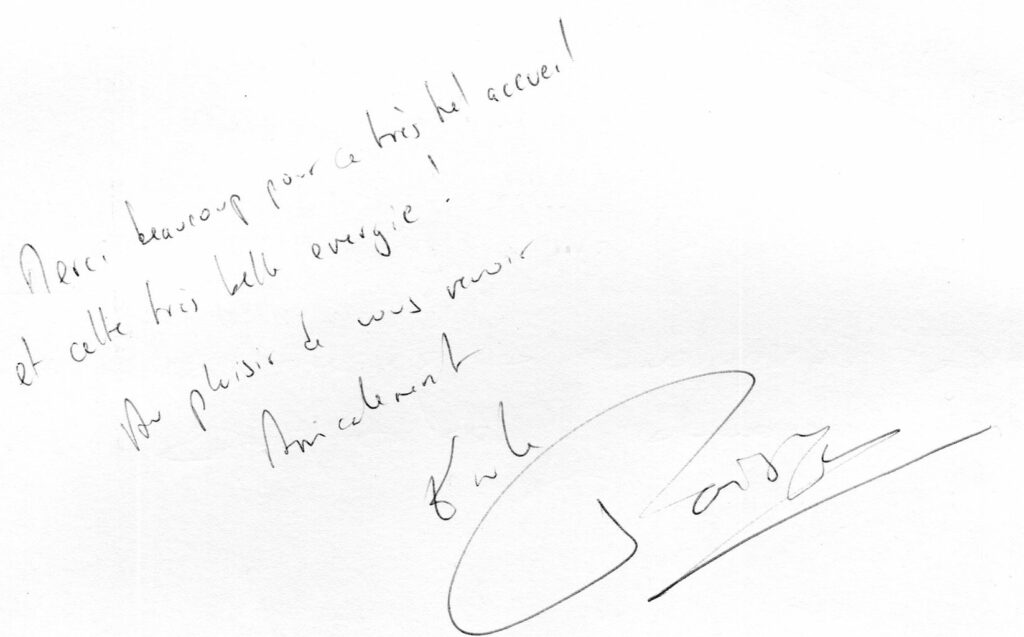 Merci beaucoup pour ce très bel accueil
et cette très belle energie !
Au plaisir de vous revoir
Amicalement